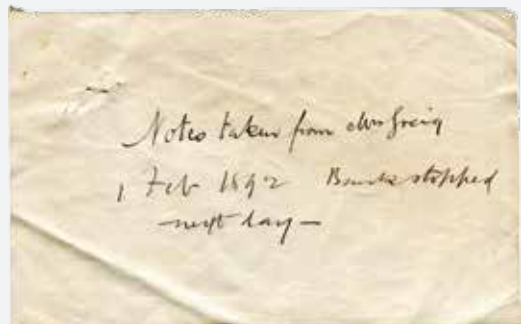 Notes taken from Mrs Greig
1 Feb 1892 Bank stopped
next day —